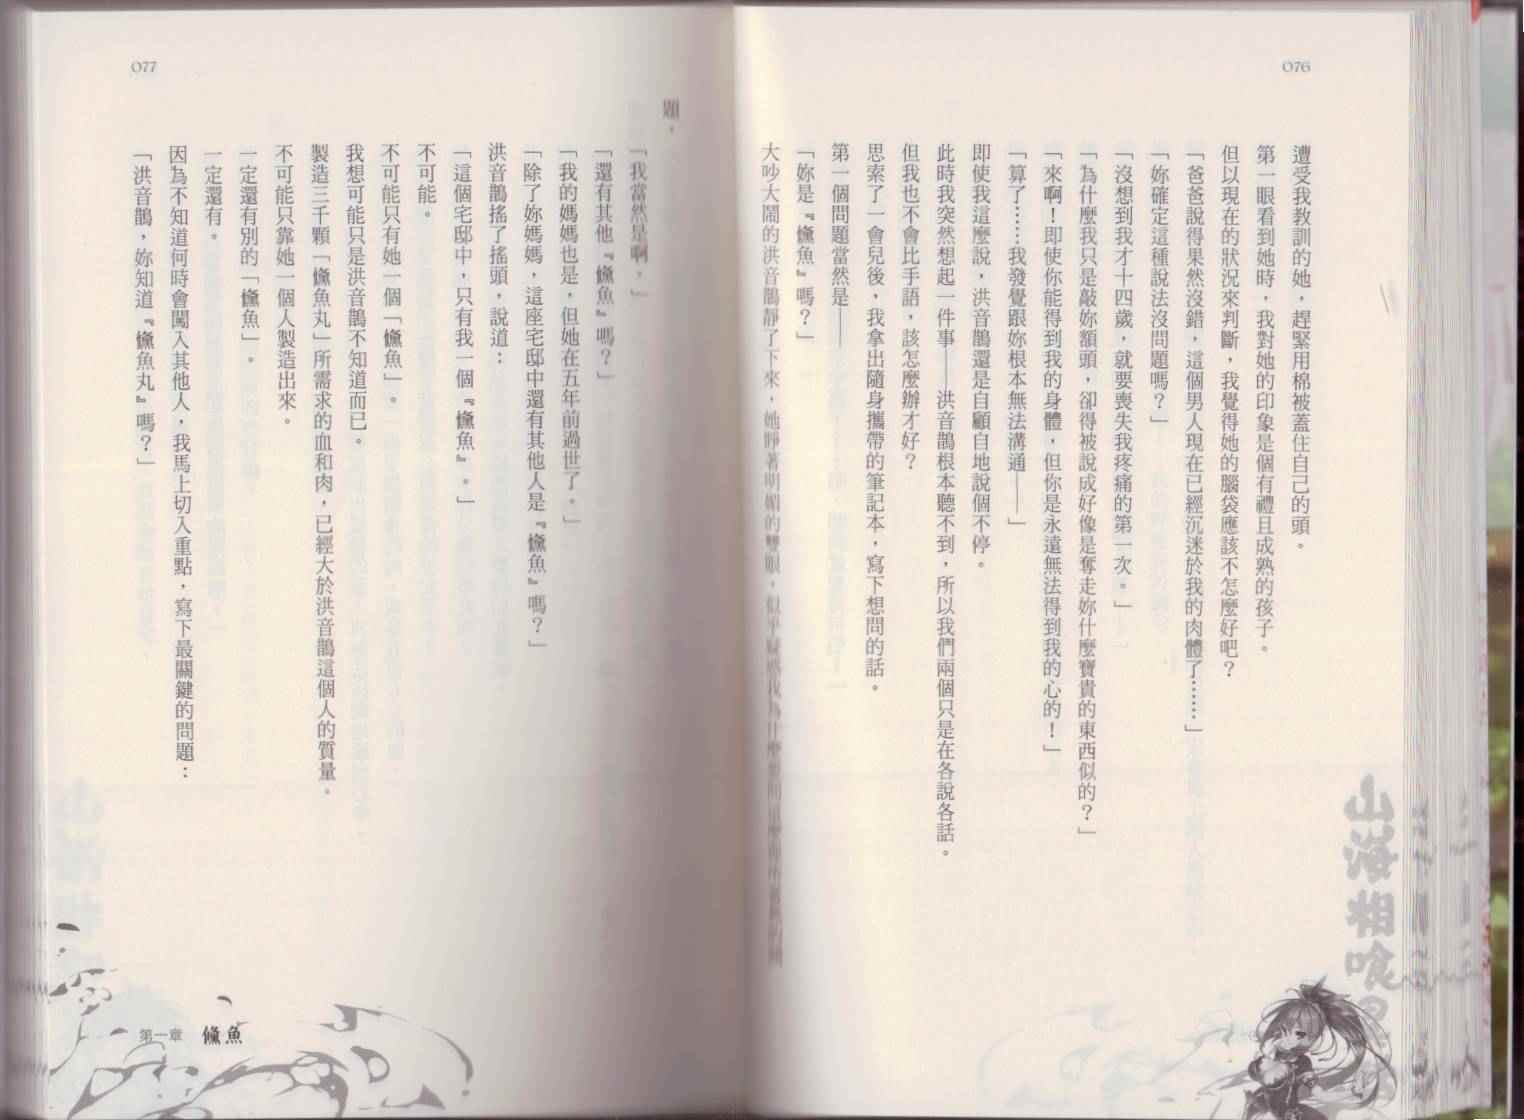 076
遭受我教訓的她，趕緊用棉被蓋住自己的頭。
第一眼看到她時，我對她的印象是個有禮且成熟的孩子。
但以現在的狀況來判斷，我覺得她的腦袋應該不怎麼好吧？
「爸爸說得果然沒錯，這個男人現在已經沉迷於我的肉體了……」
「妳確定這種說法沒問題嗎？」
「沒想到我才十四歲，就要喪失我疼痛的第一次。」
「為什麼我只是敲妳額頭，卻得被說成好像是奪走妳什麼寶貴的東西似的？」
「來啊！即使你能得到我的身體，但你是永遠無法得到我的心的！」
「算了……我發覺跟妳根本無法溝通——」
即使我這麼說，洪音鵲還是自顧自地說個不停。
此時我突然想起一件事——洪音鵲根本聽不到，所以我們兩個只是在各說各話。
但我也不會比手語，該怎麼辦才好？
思索了一會兒後，我拿出隨身攜帶的筆記本，寫下想問的話。
第一個問題當然是——
「妳是『儵魚』嗎？」
大吵大鬧的洪音鵲靜了下來，她睜著明媚的雙眼，似乎疑惑我為什麼要問這麼理所當然的問
山海相喰
077
題，
「我當然是啊，」
「還有其他『儵魚』嗎？」
「我的媽媽也是，但她在五年前過世了。」
「除了妳媽媽，這座宅邸中還有其他人是『儵魚』嗎？」
洪音鵲搖了搖頭，說道：
「這個宅邸中，只有我一個『儵魚』。」
不可能。
不可能只有她一個「儵魚」。
我想可能只是洪音鵲不知道而已。
製造三千顆「儵魚丸」所需求的血和肉，已經大於洪音鵲這個人的質量。
不可能只靠她一個人製造出來。
一定還有別的「儵魚」。
一定還有。
因為不知道何時會闖入其他人，我馬上切入重點，寫下最關鍵的問題：
「洪音鵲，妳知道『儵魚丸』嗎？」
第一章 儵魚